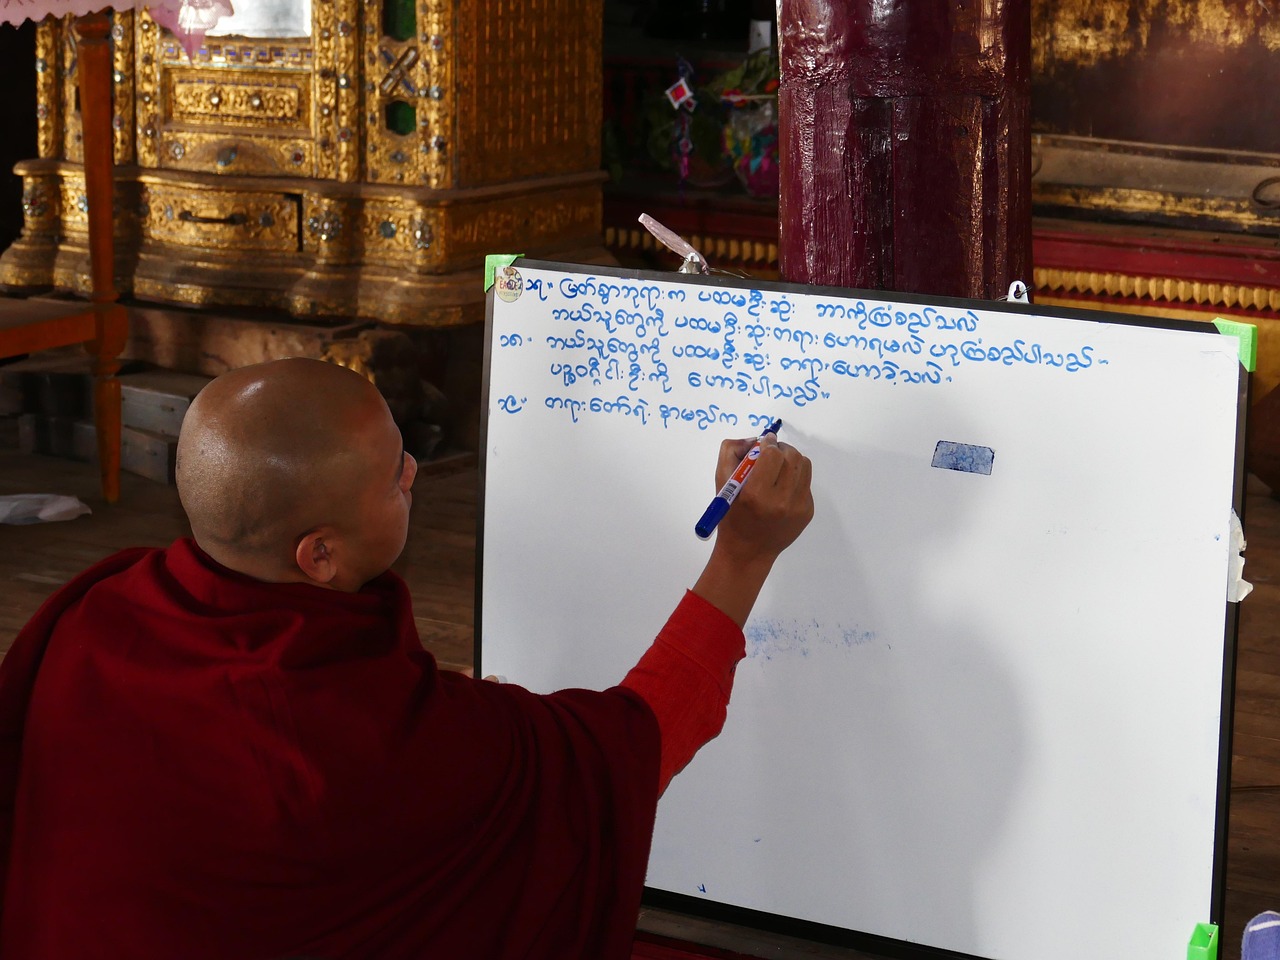 ၁၇။ မြတ်စွာဘုရားက ပထမဦးဆုံး ဘာကိုကြံစည်သလဲ
ဘယ်သူတွေကို ပထမဦးဆုံးတရားဟောရမလဲ ဟုကြံစည်ပါသည်။
၁၈။ ဘယ်သူတွေကို ပထမဦးဆုံး တရားဟောခဲ့သလဲ။
ပဉ္စဝဂ္ဂီငါးဦးကို ဟောခဲ့ပါသည်။
၁၉။ တရားတော်ရဲ့ နာမည်က ဘ